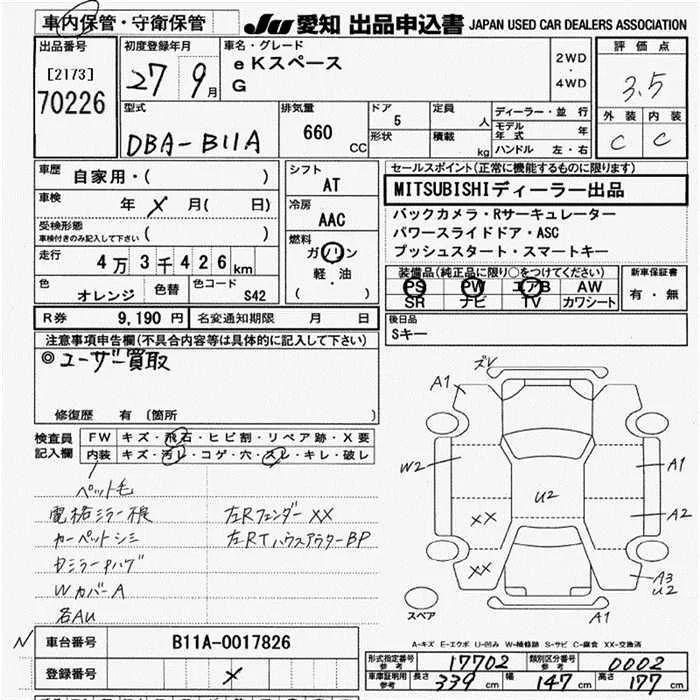 車内保管・守衛保管
JU 愛知 出品申込書 JAPAN USED CAR DEALERS ASSOCIATION
出品番号
[2173]
70226
初度登録年月
27 9月
車名・グレード
eKスペース
G
2WD
・
4WD
評価点
3.5
外装 内装
C C
型式
DBA-B11A
排気量
660 CC
ドア 5
形状
定員 人
積載 kg
ディーラー・並行
モデル年式 年
ハンドル 左・右
車歴 自家用・( )
車検 年 メ 月( 日)
受検形態
車検付きのみ記入して下さい ( )
走行 4万3千426km
色 オレンジ 色替 色コード S42
シフト
AT
冷房
AAC
燃料
ガソリン
軽・油
( )
セールスポイント(正常に機能するものに限ります)
MITSUBISHIディーラー出品
バックカメラ・Rサーキュレーター
パワースライドドア・ASC
プッシュスタート・スマートキー
装備品(純正品に限り○をつけてください)
PS PW エアB AW
SR ナビ TV カワシート
新車保証書
有・無
R券 9,190円 名変通知期限 月 日
後日品
Sキー
注意事項申告欄(不具合内容等は具体的に記入して下さい)
◎ユーザー買取
修復歴 有 (箇所 )
検査員
記入欄
FW キズ・飛石・ヒビ割・リペア跡・X要
内装 キズ・汚レ・コゲ・穴・スレ・キレ・破レ
ペット毛
電格ミラー不良
カーペットシミ
Dミラーチバゲ
WカバーA
各AU
左Rフェンダー XX
左RTハウスアウターBP
ズレ
A1
W2
A1
U2
A2
XX
XX
A3
U2
スペア
A1
A-キズ E-エクボ U-凹み W-補修跡 S-サビ C-腐食 XX-交換済
N 車台番号 B11A-0017826
登録番号 メ
形式指定番号 参考 17702 類別区分番号 参考 0002
車庫証明用 参考 長さ 339cm 幅 147cm 高さ 177cm